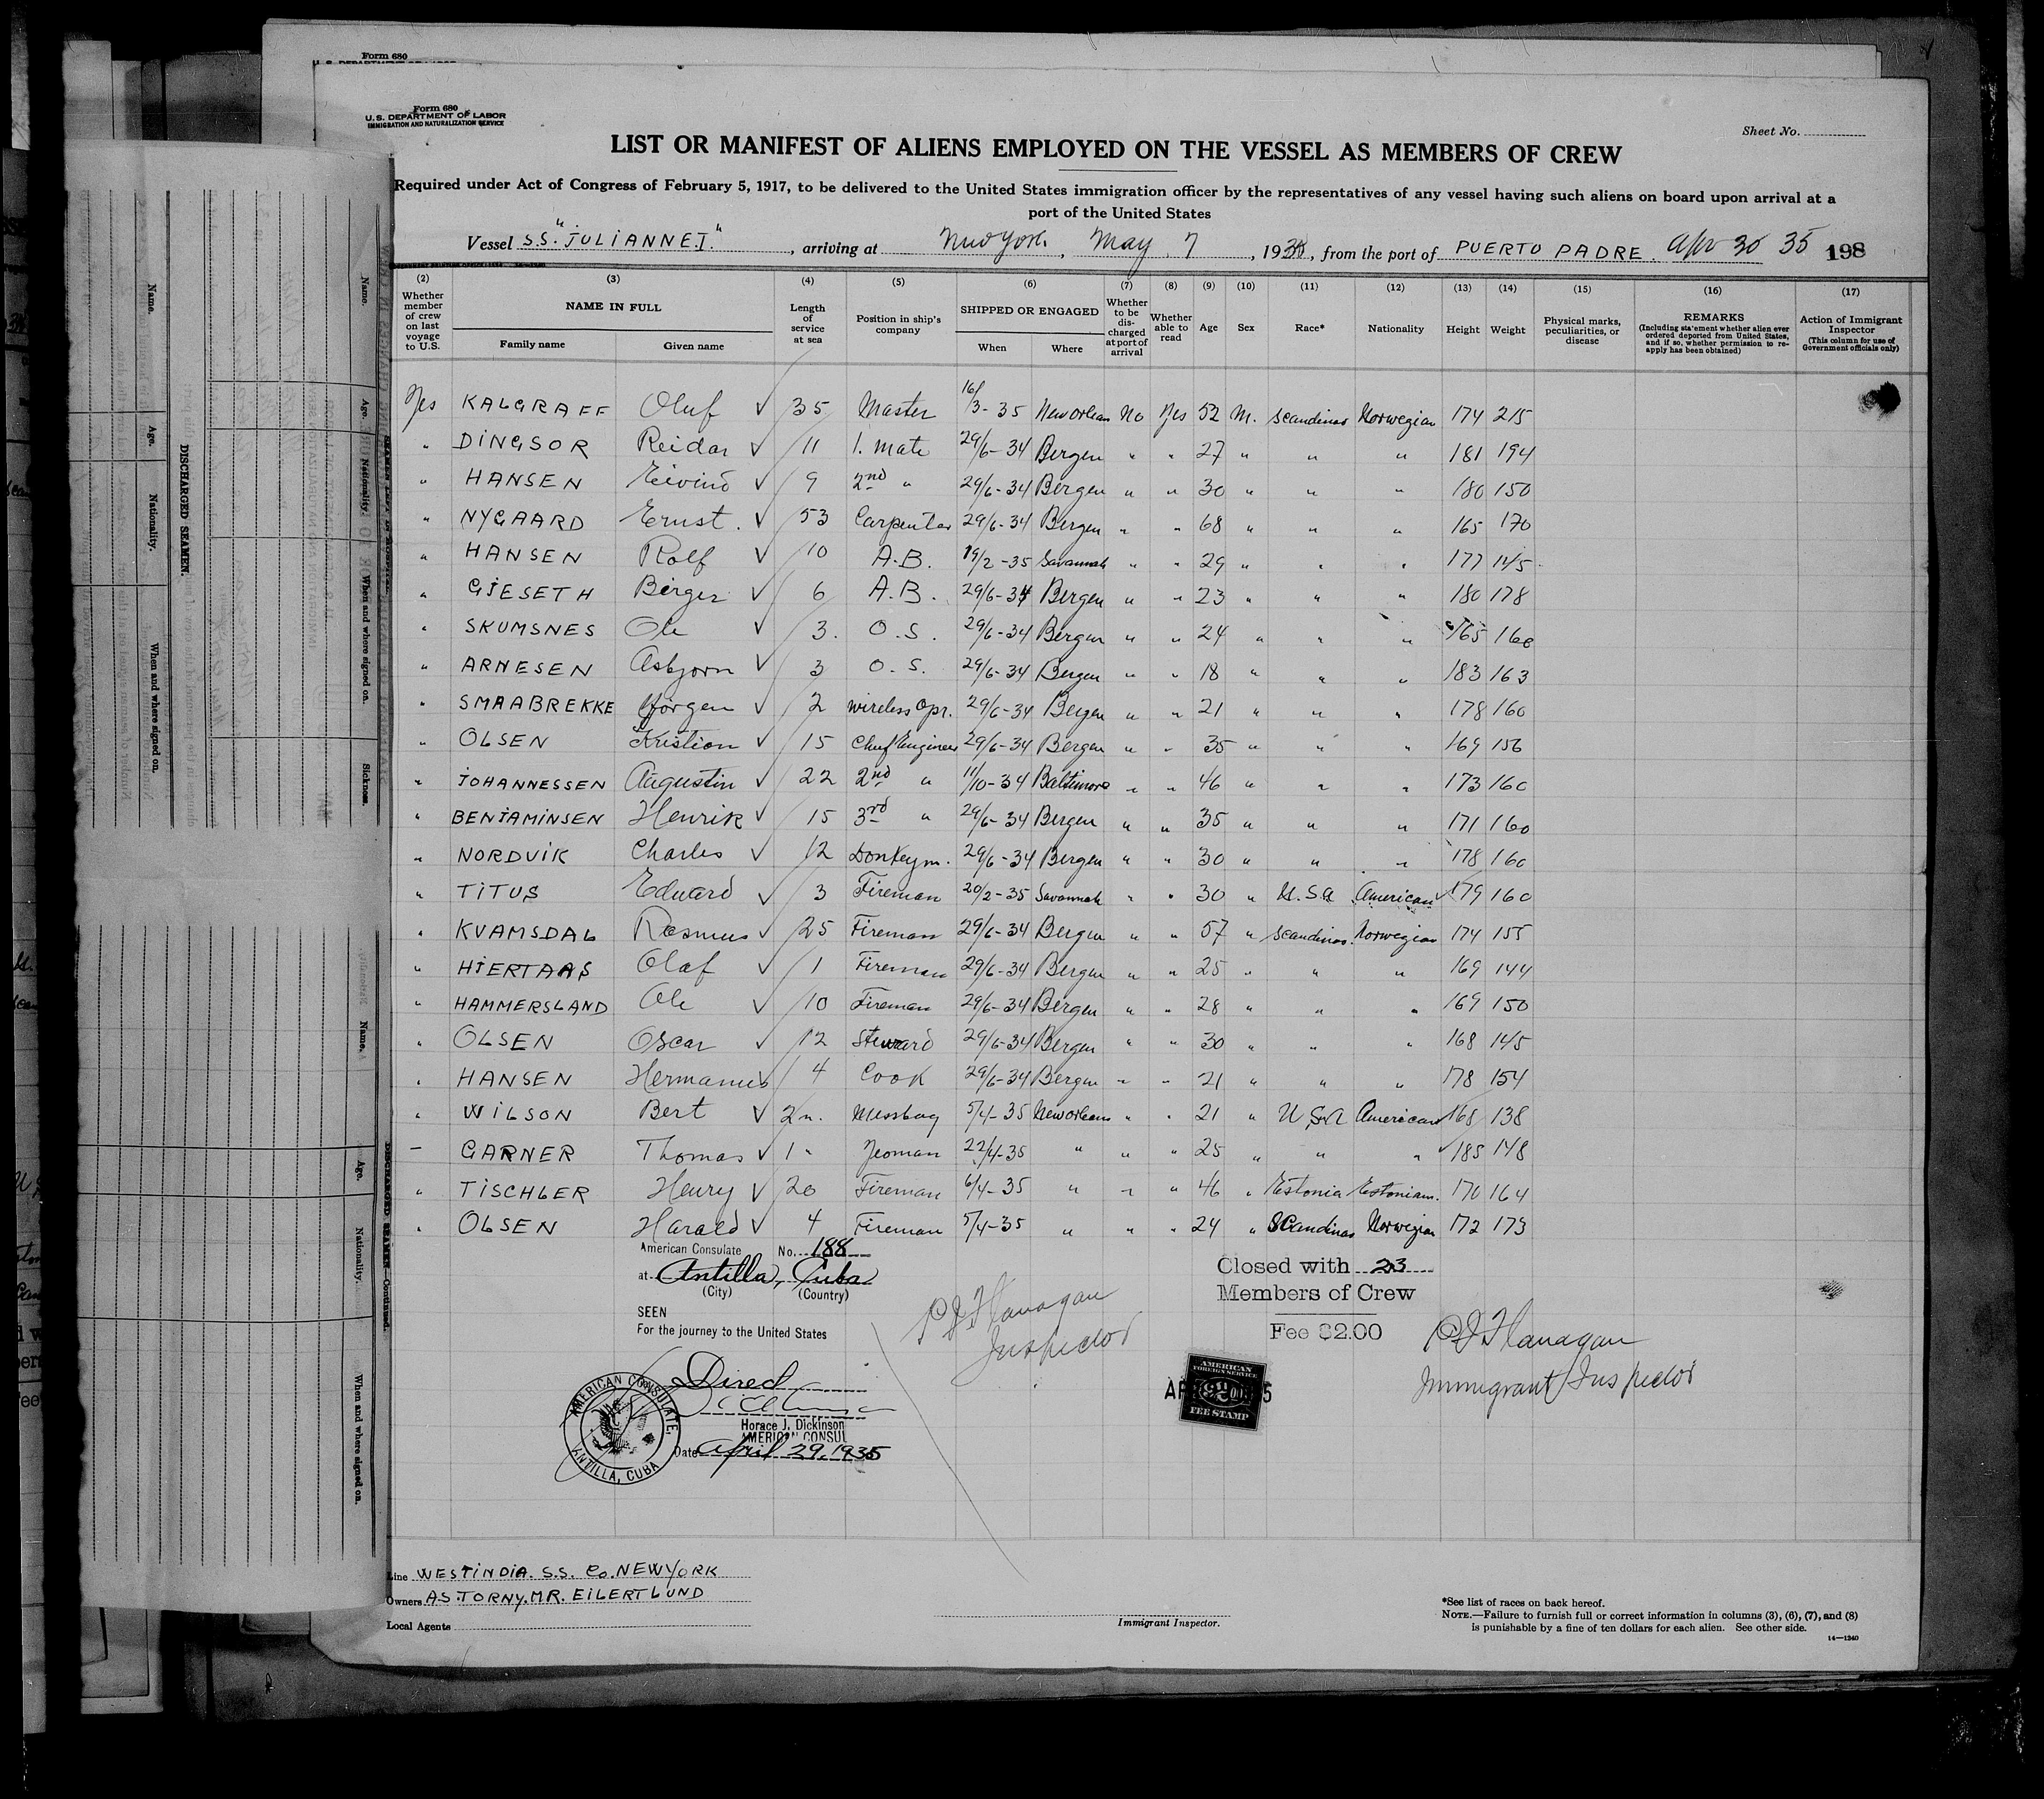 Form 680
Form 680
U.S. DEPARTMENT OF LABOR
IMMIGRATION AND NATURALIZATION SERVICE
Sheet No.
LIST OR MANIFEST OF ALIENS EMPLOYED ON THE VESSEL AS MEMBERS OF CREW
Required under Act of Congress of February 5, 1917, to be delivered to the United States immigration officer by the representatives of any vessel having such aliens on board upon arrival at a
port of the United States
Vessel S.S. "JULIANNE I.", arriving at New York, May 7, 193, from the port of PUERTO PADRE. Apr 30 35 198
(2) (3) (4) (5) (6) (7) (8) (9) (10) (11) (12) (13) (14) (15) (16) (17)
Whether member of crew on last voyage to U.S. NAME IN FULL Family name Given name Length of service at sea Position in ship's company SHIPPED OR ENGAGED When Where Whether to be discharged at port of arrival Whether able to read Age Sex Race* Nationality Height Weight Physical marks, peculiarities, or disease REMARKS (Including statement whether alien ever ordered deported from United States, and if so, whether permission to reapply has been obtained) Action of Immigrant Inspector (This column for use of Government officials only)
Yes KALGRAFF Oluf √ 35 Master 16/3-35 New Orlean No Yes 52 M. Scandinav Norwegian 174 215
" DINGSOR Reidar √ 11 1. Mate 29/6-34 Bergen " " 27 " " " 181 194
" HANSEN Eivind √ 9 2nd " 29/6-34 Bergen " " 30 " " " 180 150
" NYGAARD Ernst. √ 53 Carpenter 29/6-34 Bergen " " 68 " " " 165 170
" HANSEN Rolf √ 10 A.B. 19/2-35 Savannah " " 29 " " " 177 145
" GJESETH Birger √ 6 A.B. 29/6-34 Bergen " " 23 " " " 180 178
" SKUMSNES Ole √ 3. O.S. 29/6-34 Bergen " " 24 " " " 165 168
" ARNESEN Asbjorn √ 3 O.S. 29/6-34 Bergen " " 18 " " " 183 163
" SMAABREKKE Jörgen √ 2 Wireless Opr. 29/6-34 Bergen " " 21 " " " 178 160
" OLSEN Kristian √ 15 Chief Engineer 29/6-34 Bergen " " 35 " " " 169 156
" JOHANNESSEN Augustin √ 22 2nd " 11/10-34 Baltimore " " 46 " " " 173 160
" BENJAMINSEN Henrik √ 15 3rd " 29/6-34 Bergen " " 35 " " " 171 160
" NORDVIK Charles √ 12 Donkeym. 29/6-34 Bergen " " 30 " " " 178 160
" TITUS Edward √ 3 Fireman 20/2-35 Savannah " " 30 " U.S.A American √ 179 160
" KVAMSDAL Rasmus √ 25 Fireman 29/6-34 Bergen " " 57 " Scandinav. Norwegian 174 155
" HJERTAAS Olaf √ 1 Fireman 29/6-34 Bergen " " 25 " " " 169 144
" HAMMERSLAND Ole √ 10 Fireman 29/6-34 Bergen " " 28 " " " 169 150
" OLSEN Oscar √ 12 Steward 29/6-34 Bergen " " 30 " " " 168 145
" HANSEN Hermanus √ 4 Cook 29/6-34 Bergen " " 21 " " " 178 154
" WILSON Bert √ 2m. Messboy 5/4-35 New Orleans " " 21 " U.S.A American √ 168 138
— GARNER Thomas √ 1 " Yeoman 22/4-35 " " " 25 " " " √ 185 148
" TISCHLER Henry √ 20 Fireman 6/4-35 " " " 46 " Estonia Estonian. 170 164
" OLSEN Harald √ 4 Fireman 5/4-35 " " " 24 " Scandinav Norwegian 172 173
American Consulate No. 188
at Antilla, Cuba
(City) (Country)
SEEN
For the journey to the United States
Direct
Horace J. Dickinson
AMERICAN CONSUL
Date April 29, 1935
AMERICAN CONSULATE, ANTILLA, CUBA
P J Flanagan
Inspector
Closed with 23
Members of Crew
Fee $2.00
AMERICAN FOREIGN SERVICE FEE STAMP
P J Flanagan
Immigrant Inspector
Line WESTINDIA. S.S. Co. NEW YORK
Owners A.S. TORNY. MR. EILERT LUND
Local Agents
Immigrant Inspector.
*See list of races on back hereof.
NOTE.—Failure to furnish full or correct information in columns (3), (6), (7), and (8)
is punishable by a fine of ten dollars for each alien. See other side.
14—1240
DISCHARGED SEAMEN.
Name. Age. Nationality. When and where signed on.
Name. Age. Nationality. When and where signed on. Sickness.
DISCHARGED SEAMEN—Continued.
Name. Age. Nationality. When and where signed on.